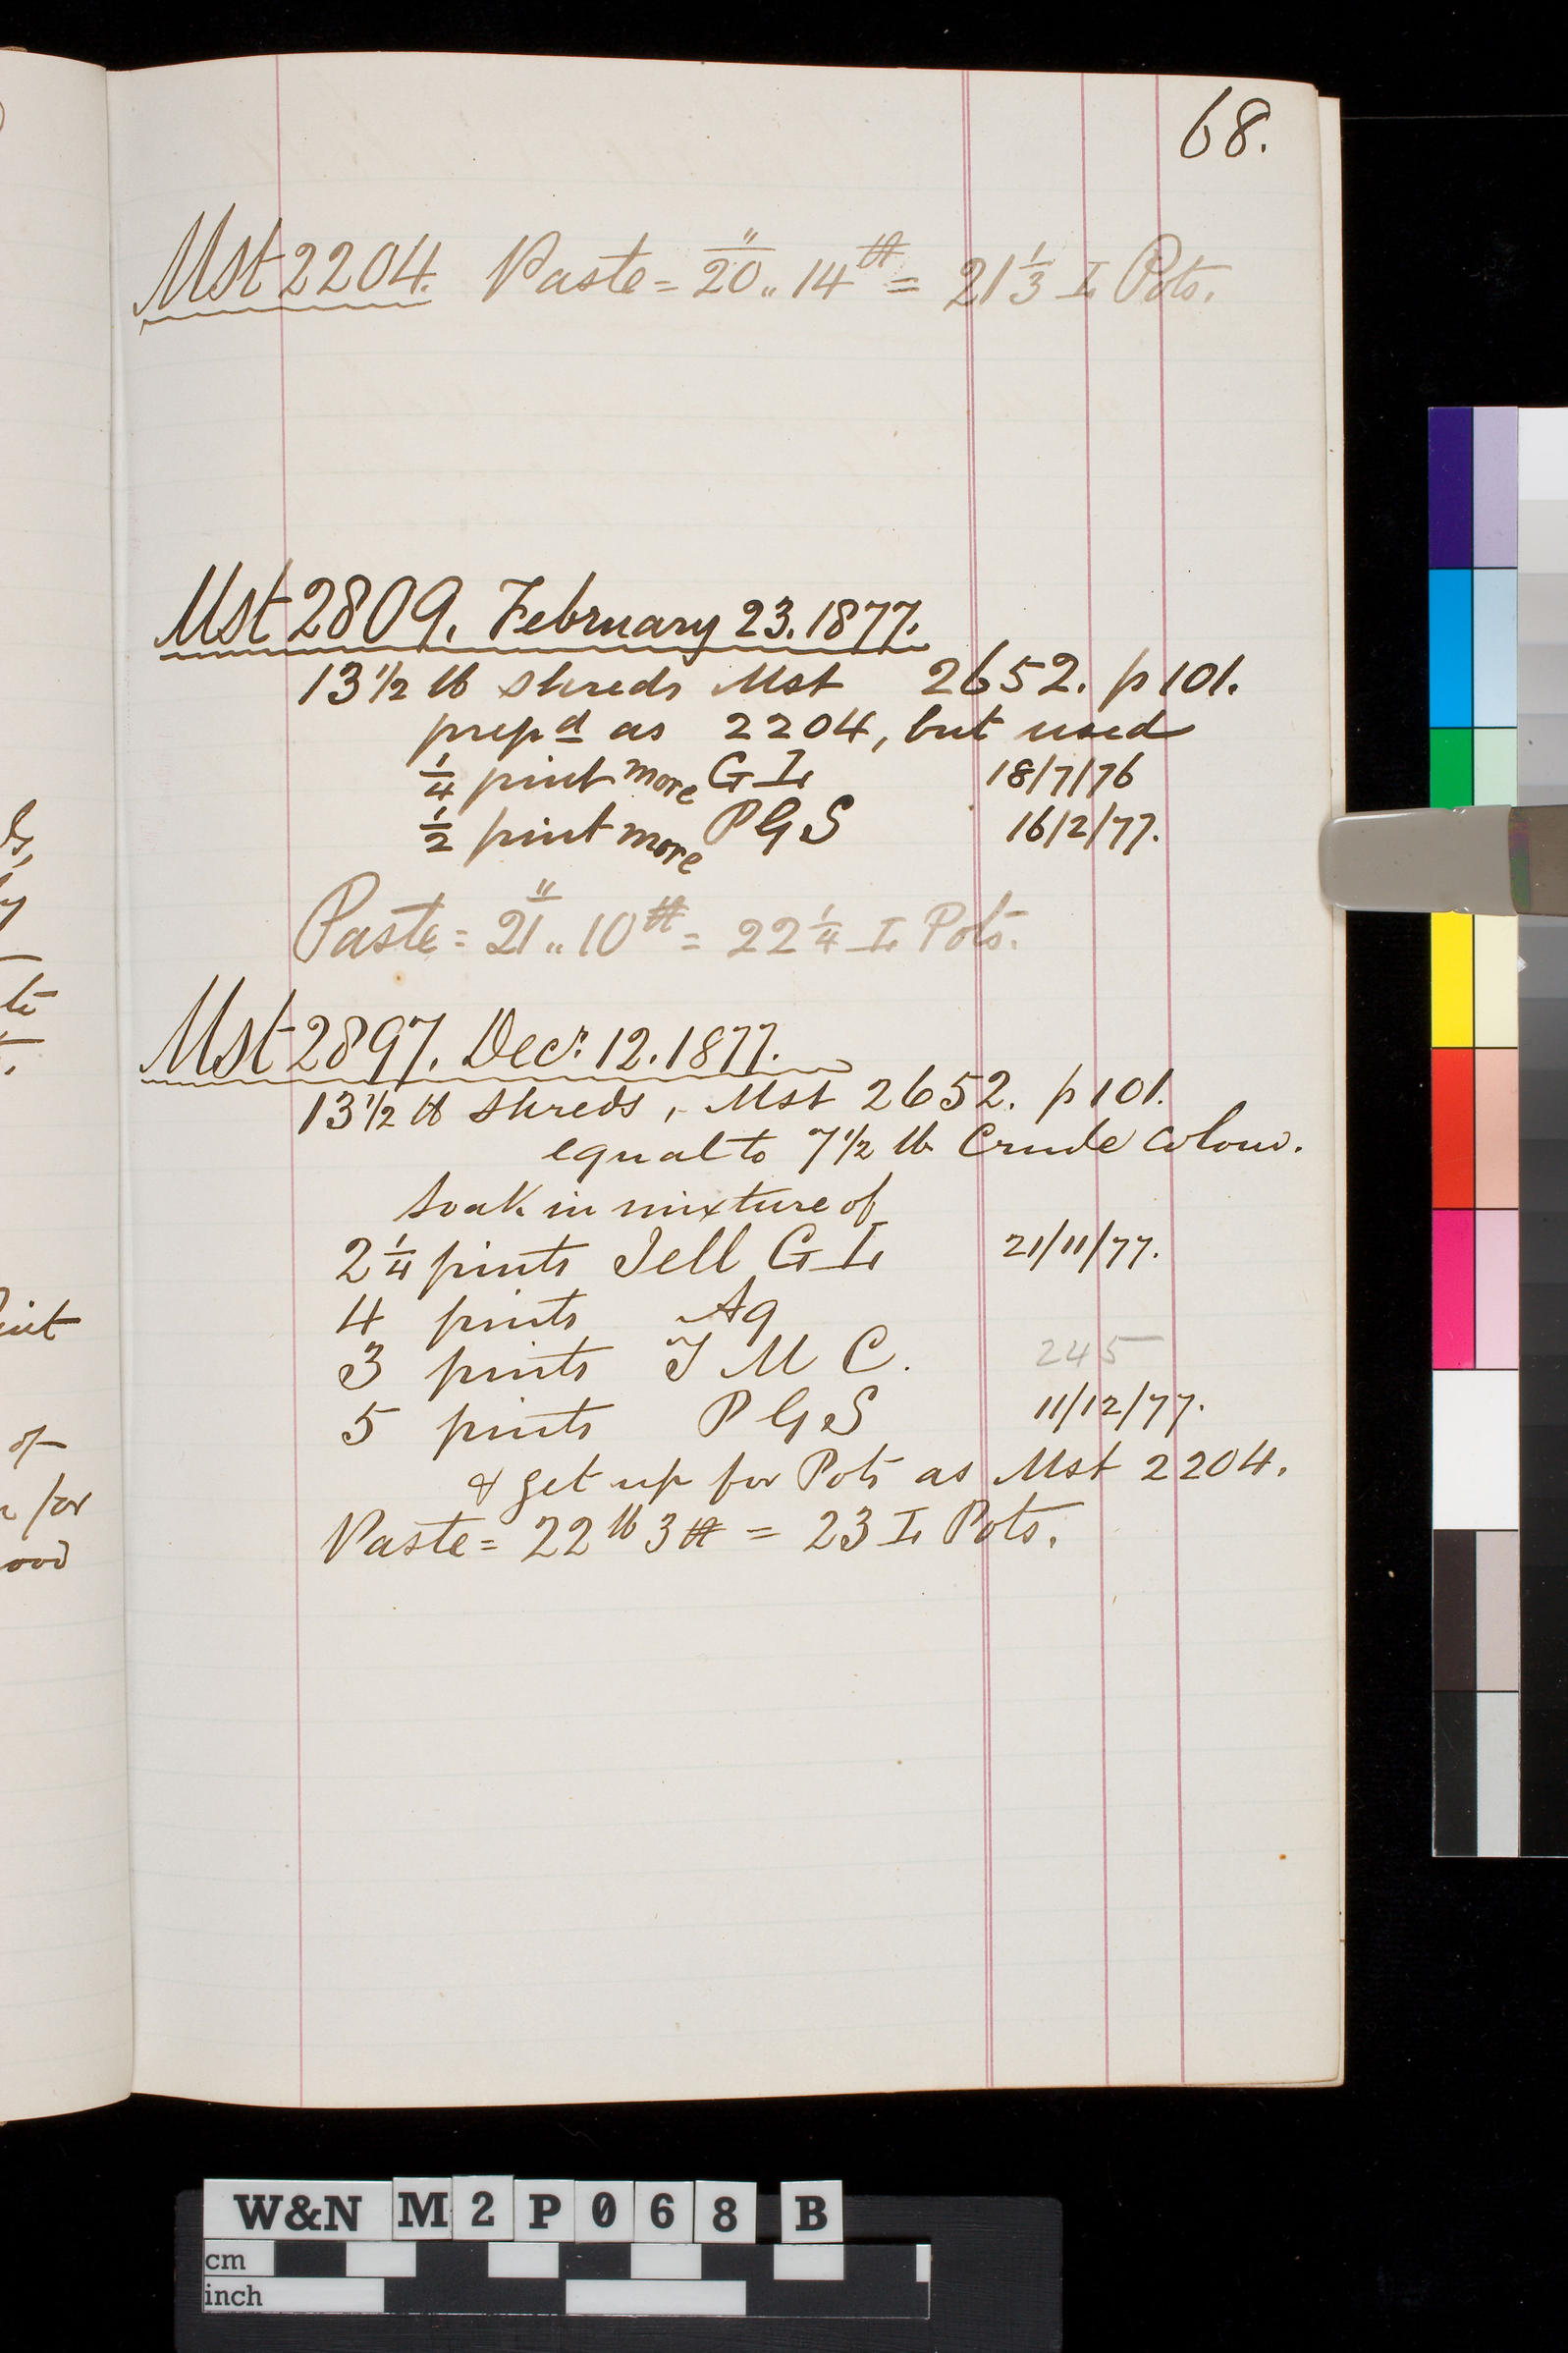 68.
Mst 2204. Paste = 20 „ 14 = 21 1/3 L Pots.
Mst 2809. February 23. 1877.
13 1/2 lb shreds Mst 2652. p 101.
prepd as 2204, but used
1/4 pint more G L 18/7/76
1/2 pint more P G S 16/2/77.
Paste = 21 „ 10 = 22 1/4 L Pots.
Mst 2897. Decr. 12. 1877.
13 1/2 lb shreds, Mst 2652. p 101.
equal to 7 1/2 lb Crude Colour.
soak in mixture of
2 1/4 pints Jell G L 21/11/77.
4 pints Aq
3 pints J M C. 245
5 pints P G S 11/12/77.
& get up for Pots as Mst 2204.
Paste = 22 lb 3 = 23 L Pots.
of
ood
W&N M2P068 B
cm
inch